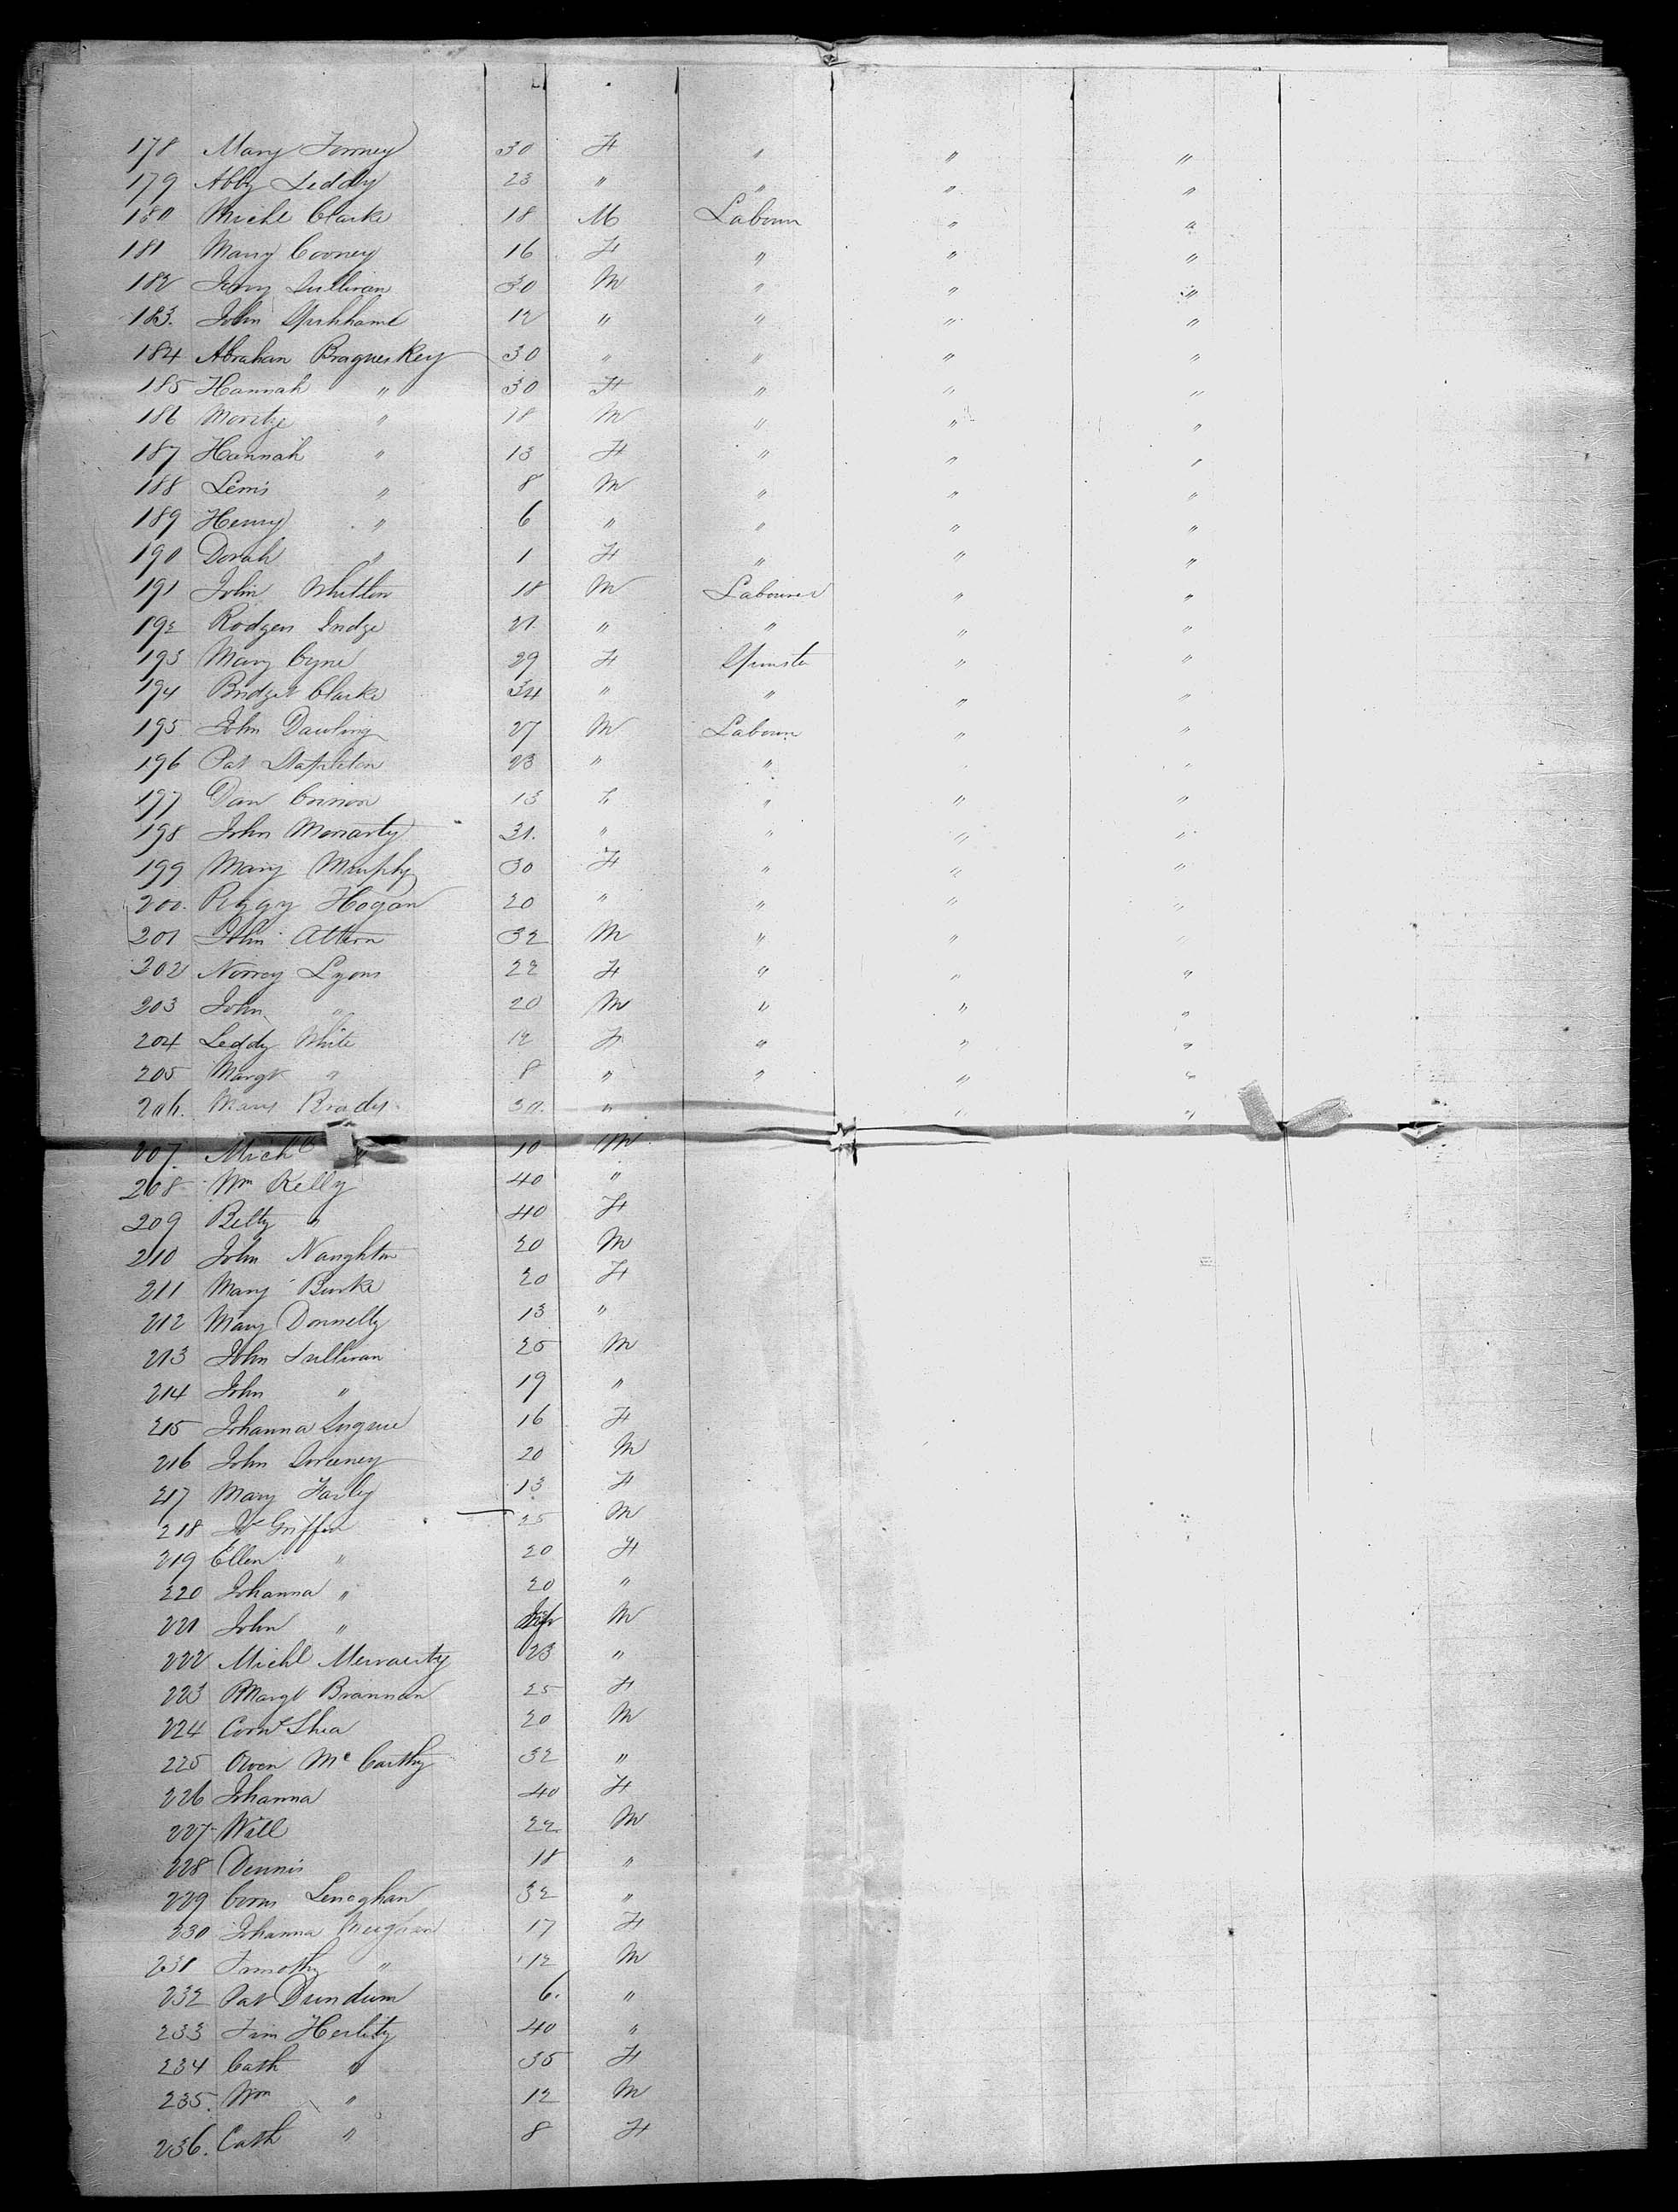 178 Mary Torney 30 F " " "
179 Abby Leddy 23 " " " "
180 Michl Clarke 18 M Labourr " "
181 Mary Cooney 16 F " " "
182 Jerry Sullivan 30 M " " "
183. John 12 " " " "
184 Abraham Bragueskey 30 " " " "
185 Hannah " 30 F " " "
186 Moritze " 18 M " " "
187 Hannah " 13 F " " "
188 Lewis " 8 M " " "
189 Henry " 6 " " " "
190 Dorah " 1 F " " "
191 John Whitton 18 M Labourer " "
192 Rodger 21. " " " "
193 Mary Cyne 29 F Spinster " "
194 Bridget Clarke 34 " " " "
195 John Dawling 27 M Labourr " "
196 Pat Stapleton 23 " " " "
197 Dan Connor 13 " " "
198 John Moriarty 31. " " " "
199 Mary Murphy 30 F " " "
200. Peggy Hogan 20 " " " "
201 John 32 M " " "
202 Norrey Lyons 22 F " " "
203 John " 20 M " " "
204 Leddy White 12 F " " "
205 Margt " 8 " " " "
206. Mary Brady 30. " " "
207. Michl " 10 M
208 Wm Kelly 40 "
209 Betty " 40 F
210 John Naughton 20 M
211 Mary Burke 20 F
212 Mary Donnelly 13 "
213 John Sullivan 25 M
214 John " 19 "
215 Johanna 16 F
216 John Sweeney 20 M
217 Mary Farley 13 F
218 Griffin 25 M
219 Ellen " 20 F
220 Johanna " 20 "
221 John " Inft M
222 Michl Merraurty 23 "
223 Margt Brannan 25 F
224 Corns Shea 20 M
225 Owen Mc Carthy 32 "
226 Johanna 40 F
227 Will 22 M
228 Dennis 18 "
229 Corns Lenoghan 32 "
230 Johanna 17 F
231 Timothy " 12 M
232 Pat Dundum 6. "
233 Tim Herlity 40 "
234 Cath " 35 F
235. Wm " 12 M
236. Cath " 8 F